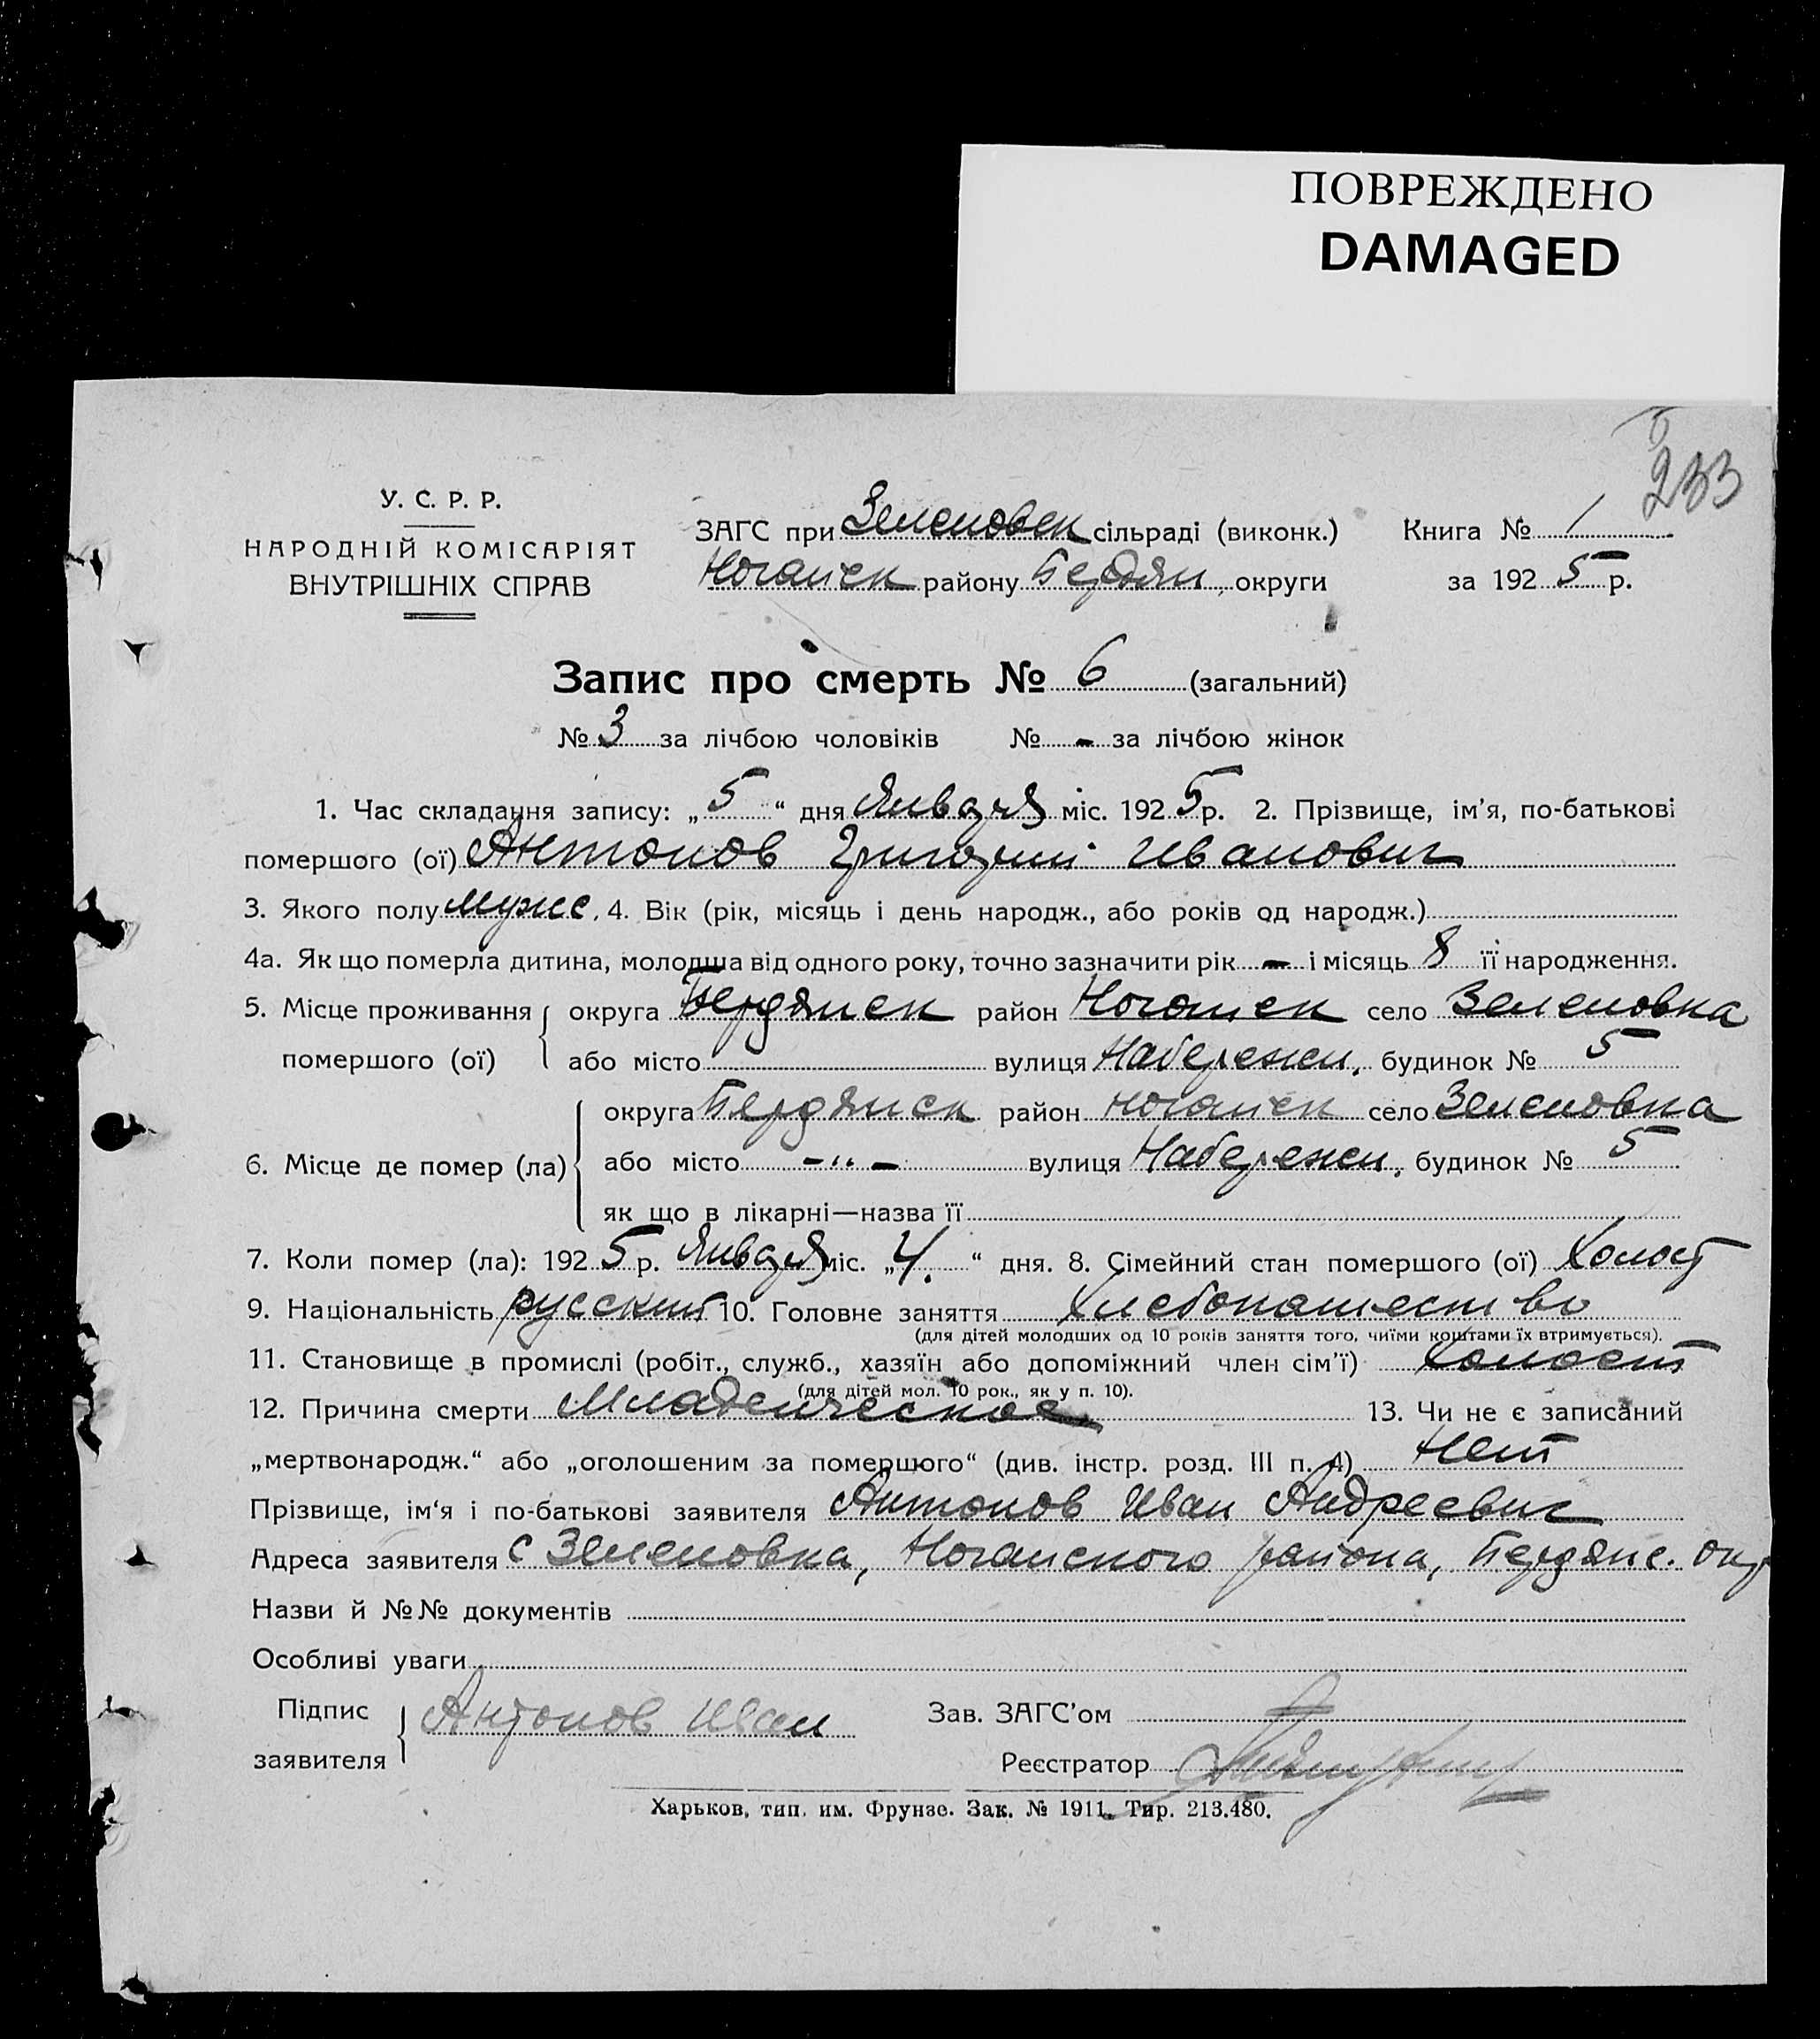 ПОВРЕЖДЕНО
DAMAGED
233
У. С. Р. Р.
НАРОДНІЙ КОМІСАРІЯТ
ВНУТРІШНІХ СПРАВ
ЗАГС при Зеленовск сільраді (виконк.) Книга № 1
Ногайск району Бердян. округи за 192 5 р.
Запис про смерть № 6 (загальний)
№ 3 за лічбою чоловіків № - за лічбою жінок
1. Час складання запису: „ 5 “ дня Января міс. 192 5 р. 2. Прізвище, ім’я, по-батькові
помершого (ої) Антонов Григорий Иванович
3. Якого полу мужс. 4. Вік (рік, місяць і день народж., або років од народж.)
4а. Як що померла дитина, молодша від одного року, точно зазначити рік - і місяць 8 її народження.
5. Місце проживання округа Бердянск район Ногайск село Зеленовка
помершого (ої) або місто вулиця Набережн. будинок № 5
округа Бердянск район Ногайск село Зеленовка
6. Місце де помер (ла) або місто - „ - вулиця Набережн. будинок № 5
як що в лікарні—назва її
7. Коли помер (ла): 192 5 р. Января міс. „ 4. “ дня. 8. Сімейний стан помершого (ої) Холост
9. Національність русский 10. Головне заняття Хлебопашество
(для дітей молодших од 10 років заняття того, чиїми коштами їх втримується).
11. Становище в промислі (робіт., служб., хазяїн або допоміжний член сім’ї) Холост
(для дітей мол. 10 рок., як у п. 10).
12. Причина смерти Младенческое 13. Чи не є записаний
„мертвонародж.“ або „оголошеним за помершого“ (див. інстр. розд. III п. 4) Нет
Прізвище, ім‘я і по-батькові заявителя Антонов Иван Андреевич
Адреса заявителя с Зеленовка, Ногайского района, Бердянс. окр
Назви й №№ документів
Особливі уваги
Підпис
заявителя Антонов Иван Зав. ЗАГС’ом
Реєстратор
Харьков, тип. им. Фрунзе. Зак. № 1911. Тир. 213.480.